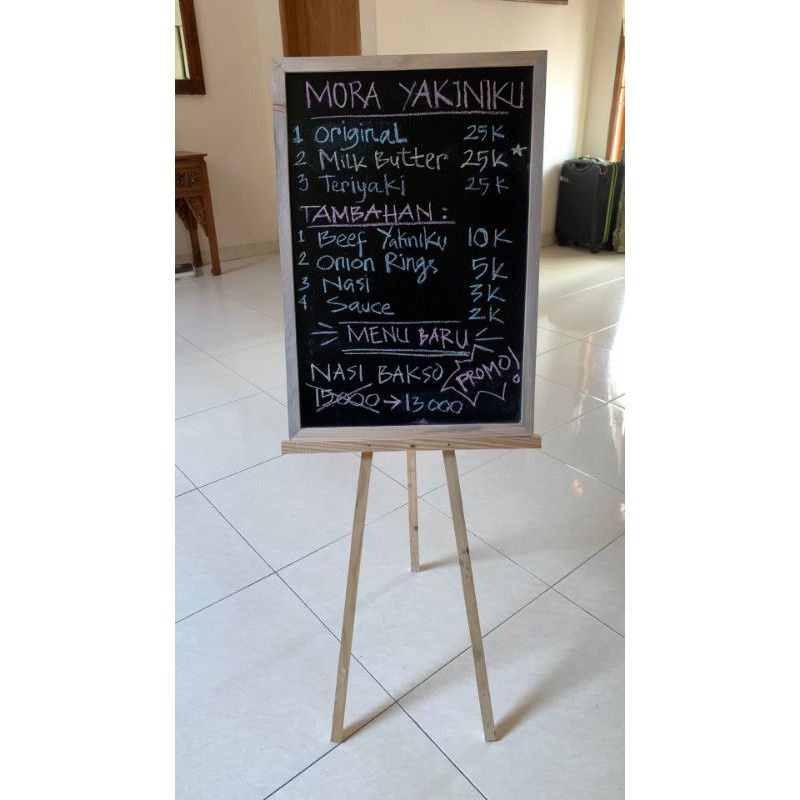 MORA YAKINIKU
1 Original 25K
2 Milk Butter 25K*
3 Teriyaki 25K
TAMBAHAN :
1 Beef Yakiniku 10K
2 Onion Rings 5K
3 Nasi 3K
4 Sauce 2K
MENU BARU
NASI BAKSO PROMO!
15000 → 13000